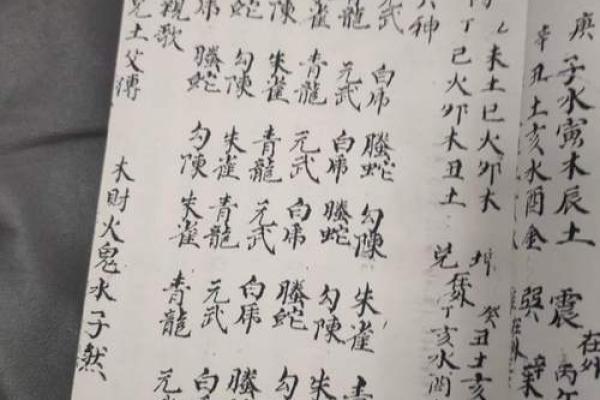 庚子水寅木辰土 震 在外 丙午
辛丑土亥水酉金 巽
乙未土巳火卯木 坤 癸丑土亥
丁巳火卯木丑土 兌 丁亥水酉
神
元武 白虎 螣蛇 勾陳 朱雀 青
青龍 元武 白虎 螣蛇 勾陳 朱
雀 青龍 元武 白虎 螣蛇 勾
陳 朱雀 青龍 元武 白虎 螣
蛇 勾陳 朱雀 青龍 元武 白
虎 螣蛇 勾陳 朱雀 青龍 元
親歌
兄土父傳 木財火鬼水子然